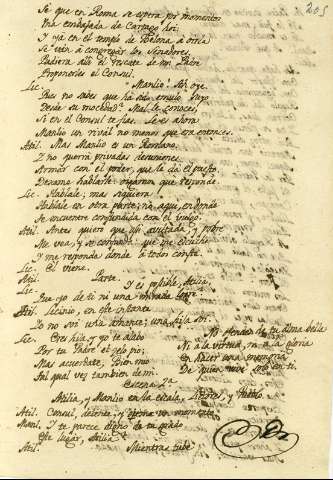 205
Sé que en Roma se espera por momentos
Una embajada de Cartago hoi:
I ya en el templo de Belona á oirla
Se ván á congregár los Senadores.
Pudiera allí el rescate de un Padre
Proponerles el Consul.
Lic. Manlio! Ah oye.
Pues no sabes que há sido emulo suyo
Desde su mocedad? Mal le conoces,
Si en el Consul te fias. Se es ahora
Manlio un rival no menos que era entonces.
Atil. Mas Manlio es un Romano.
I no querrá privadas
Armar con el poder, que le dá el puesto.
Dexame hablarle: oigamos que responde.
Lic. Hablale; mas siquiera
Hablale en otra parte; no aqui, en donde
Se encuentre confundida con el vulgo.
Atil. Antes quiero que mi y pobre
Me vea, y se que me escuche
I me responda donde lo todos
Lic. El viene.
Atil. Parte.
Lic. I es posible, Atilia,
Que yo de ti ni una mirada
Atil. Licinio, en este instante
Io no soi una amante; una hija soi.
Lic. Eres hija, y yo te alabo No ofenden de tu alma bella
Por tu Padre el zelo pio; Ni á la virtud, ni á la gloria
Mas acuerdate, Bien mio En hacer una memoria
Tal qual vez tambien de mi. De quien vive solo en ti.
Escena 2ª
Atilia, y Manlio en la escala, Lictores, y Pueblo.
Atil. Consul, detente; y un momento.
Manl. I te parece digno de tu grado
Este lugar, Atilia?
Atil. Mientras tube